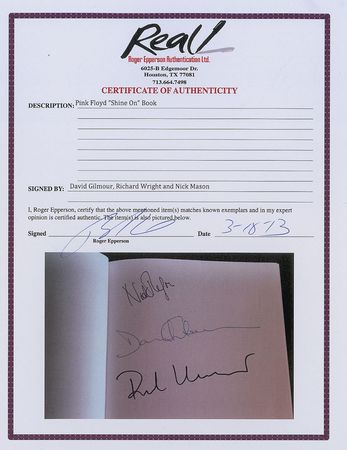 Real!
Roger Epperson Authentication Ltd.
6025-B Edgemoor Dr.
Houston, TX 77081
713.664.7498
CERTIFICATE OF AUTHENTICITY
DESCRIPTION: Pink Floyd "Shine On" Book
SIGNED BY: David Gilmour, Richard Wright and Nick Mason
I, Roger Epperson, certify that the above mentioned item(s) matches known exemplars and in my expert
opinion is certified authentic. The item(s) is also pictured below.
Signed Date 3-18-13
Roger Epperson